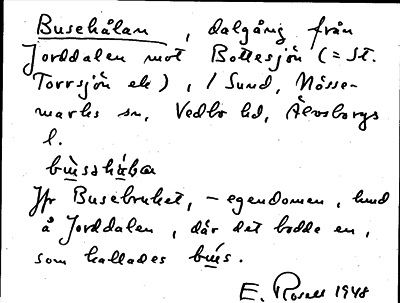 Busehålan, dalgång från
Jorddalen mot Bottesjön (= St.
Torrsjön ek), i Sund, Nösse-
marks sn, Vedbo hd, Älvsborgs
l.
Jfr Busebruket, - egendomen, lund
å Jorddalen, där det bodde en,
som kallades bu̱s.
E. Rosell 1948